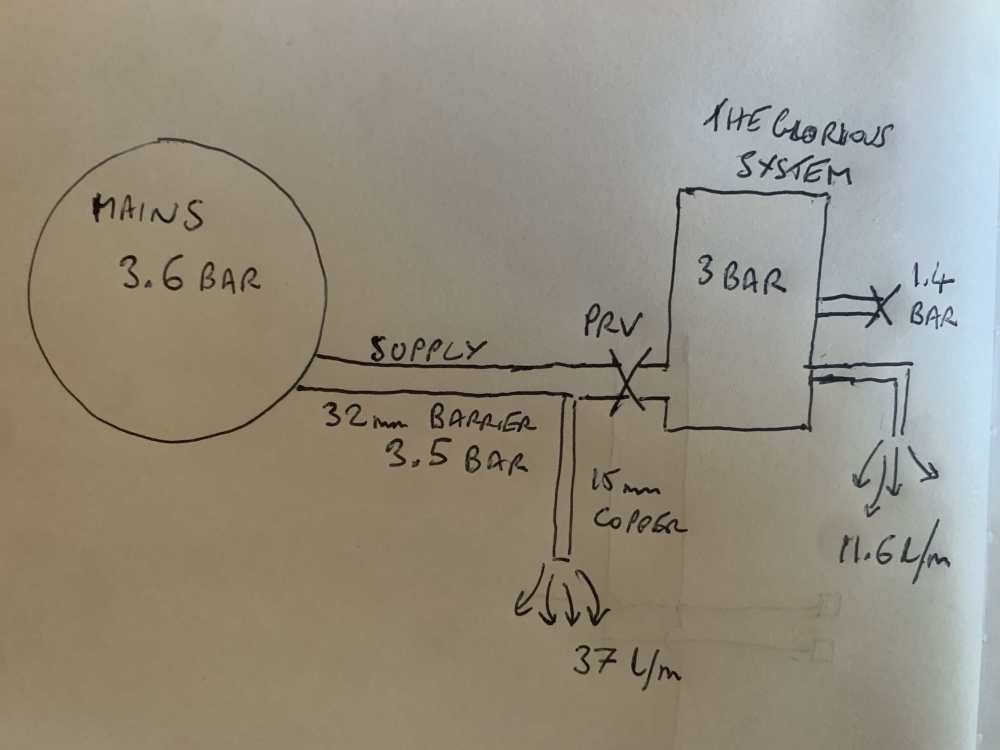 THE GLORIOUS
SYSTEM
MAINS
3.6 BAR
3 BAR
1.4
BAR
PRV
SUPPLY
32mm BARRIER
3.5 BAR
15mm
COPPER
11.6 L/m
37 L/m